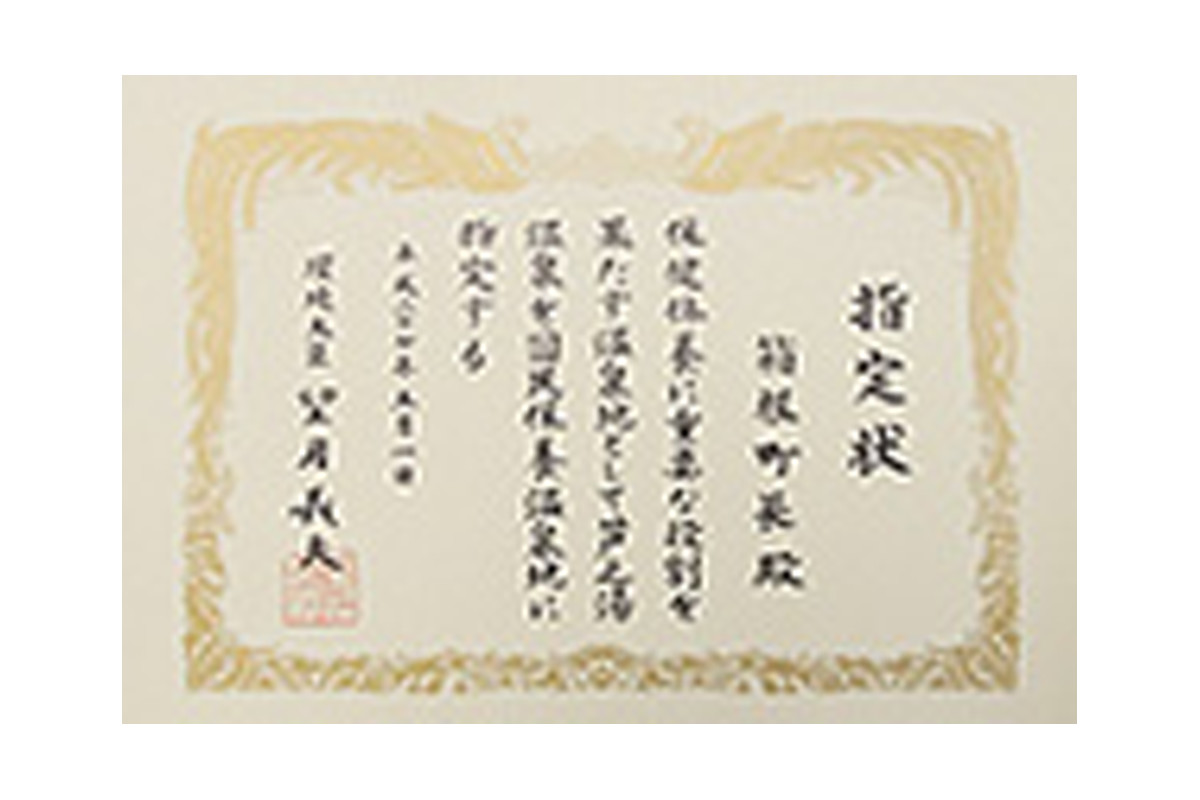 指定状
箱根町長殿
保健休養に重要な役割を
果たす温泉地として芦之湯
温泉を国民保養温泉地に
指定する
平成二十七年五月一日
環境大臣 望月義夫